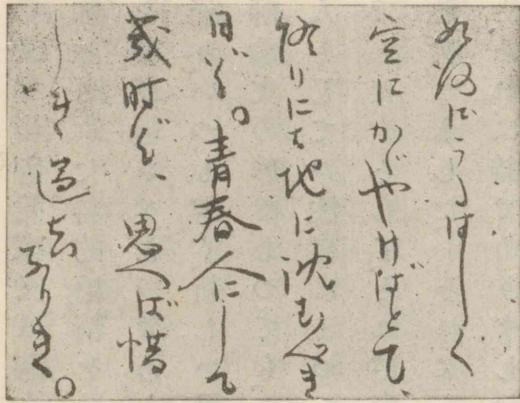 如何にうるはしく
空にかゞやけばとて、
終りには地に沈むべき
日ぞ。青春人にして
幾時ぞ、思へば惜
しき過去なりき。